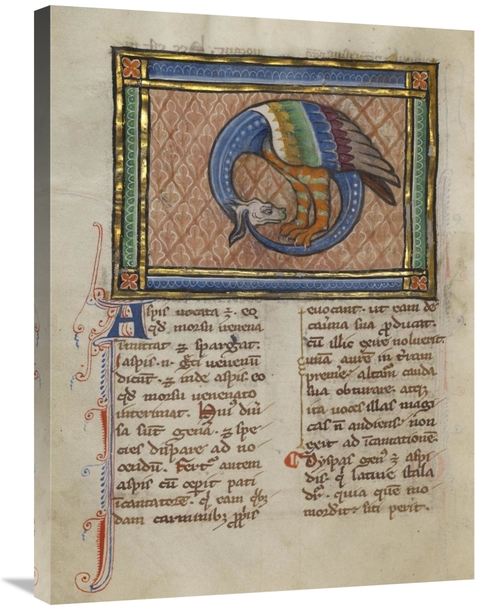 Aspis uocata ē eo
qd̄ morsu uenena
īmittat ⁊ spargat.
Iaspis .n. Gͨi uenenū
dicūt. ⁊ inde aspis eo
qd̄ morsu uenenato
interimat. Huiꝰ diu͛
sa sūt genͣa. ⁊ spe
cies dispare ad no
cendū. Fert͛ autem
aspis cū cepit pati
īcantatorē. q̄ eam qͥbꝫ
dam carminibꝫ ꝓpͥis
euocant. ut eam de
cauͣna sua ꝓducat.
cū illic egre noluerit.
unā aurē in tr̄am
premit. altam cauda
sua obturare. atqꝫ
ita uoces illas magi
cas n̄ audiens. non
exit ad īcantationē.
Dyspas genꝰ ē aspi
dis. q̄ latine situla
dr̄. quia quē mo
mordit siti perit.